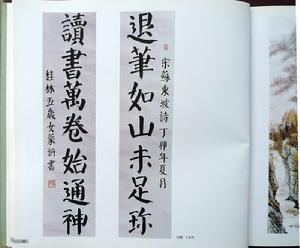 退筆如山未足珍
宋蘇東坡詩丁卯年夏月
讀書萬卷始通神
桂林五歲女蒙妍書